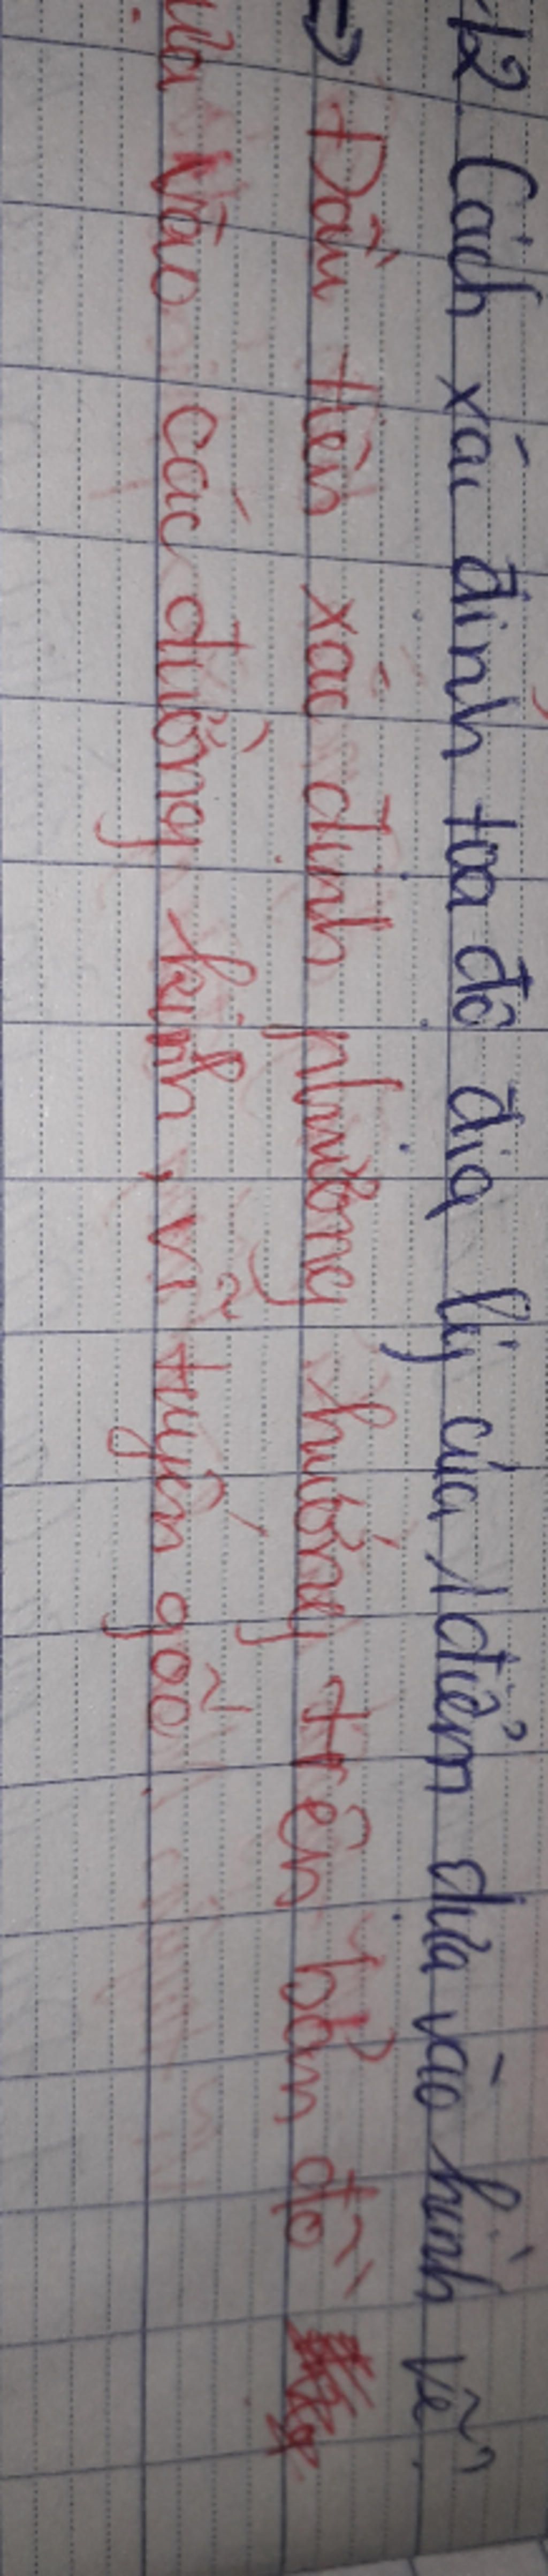 12. Cách xác định tọa độ địa lý của 1 điểm dựa vào hình vẽ?
=> Đầu tiên xác định phương hướng trên bản đồ
dựa vào các đường kinh, vĩ tuyến gốc